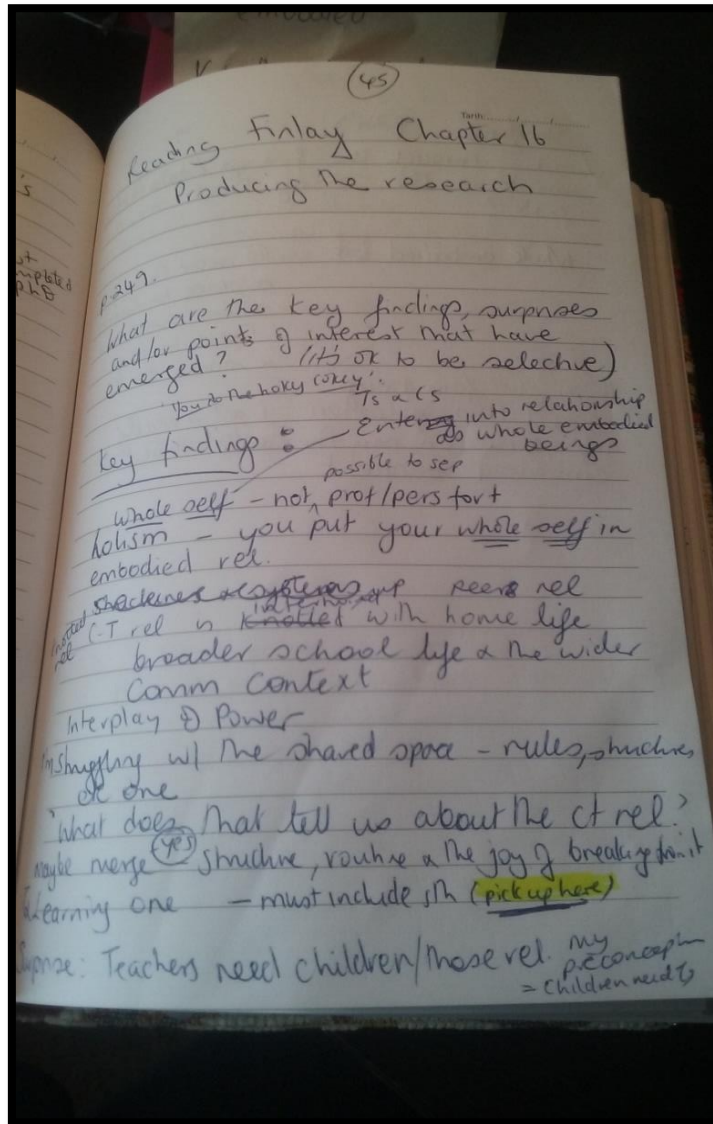 embodied
45
Tarih:
Reading Finlay Chapter 16
Producing the research
p.249.
What are the key findings, surprises
and/or points of interest that have
emerged? (it's ok to be selective)
'You do the hoky cokey'.
Ts & Cs
Key findings: Entering into relationship
as whole embodied
beings
possible to sep
whole self - not prof/pers
holism - you put your whole self in
embodied rel.
peer rel
knotted
rel
C-T rel is knotted with home life
broader school life & the wider
Comm Context
Interplay of Power
I'm struggling w/ the shared space - rules, structures
etc one
'What does that tell us about the ct rel?'
maybe merge yes structure, routine & the joy of breaking from it
Learning one - must include sth (pick up here)
Surprise: Teachers need children/those rel. my
preconception
= children need Ts